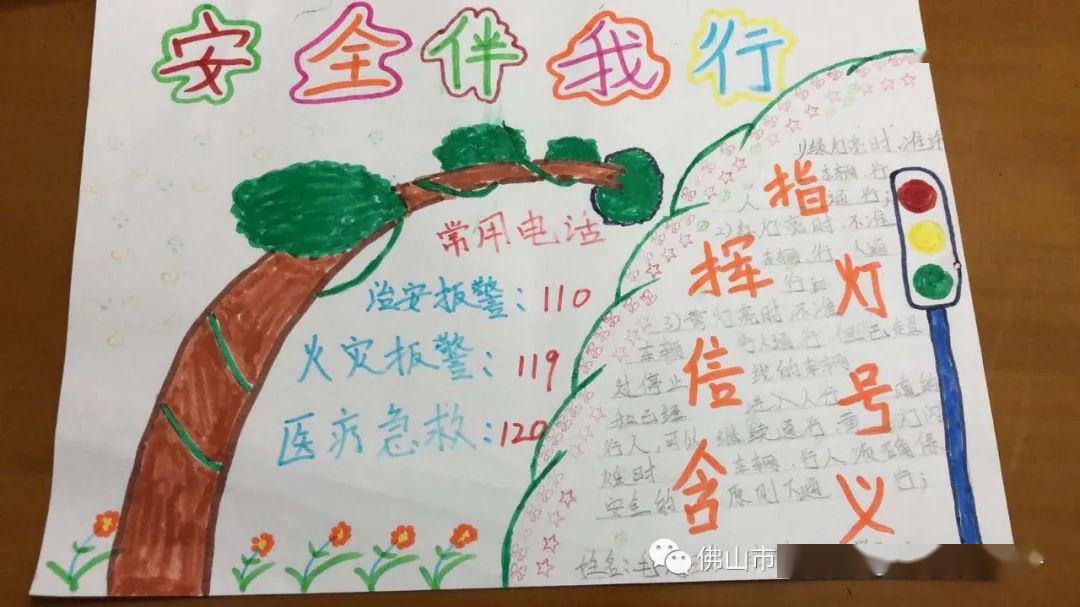 安全伴我行
常用电话
治安报警：110
火灾报警：119
医疗急救：120
指挥灯信号含义
1)绿灯亮时，准许
车辆、行
人通行；
2)红灯亮时，不准
车辆、行人通
行；
3)黄灯亮时，不准
车辆、行人通行，但已越
过停止线的车辆
和已经进入人行道的
行人，可以继续通行
黄灯闪
烁时车辆、行人须
安全的原则下通行；
姓名：
佛山市